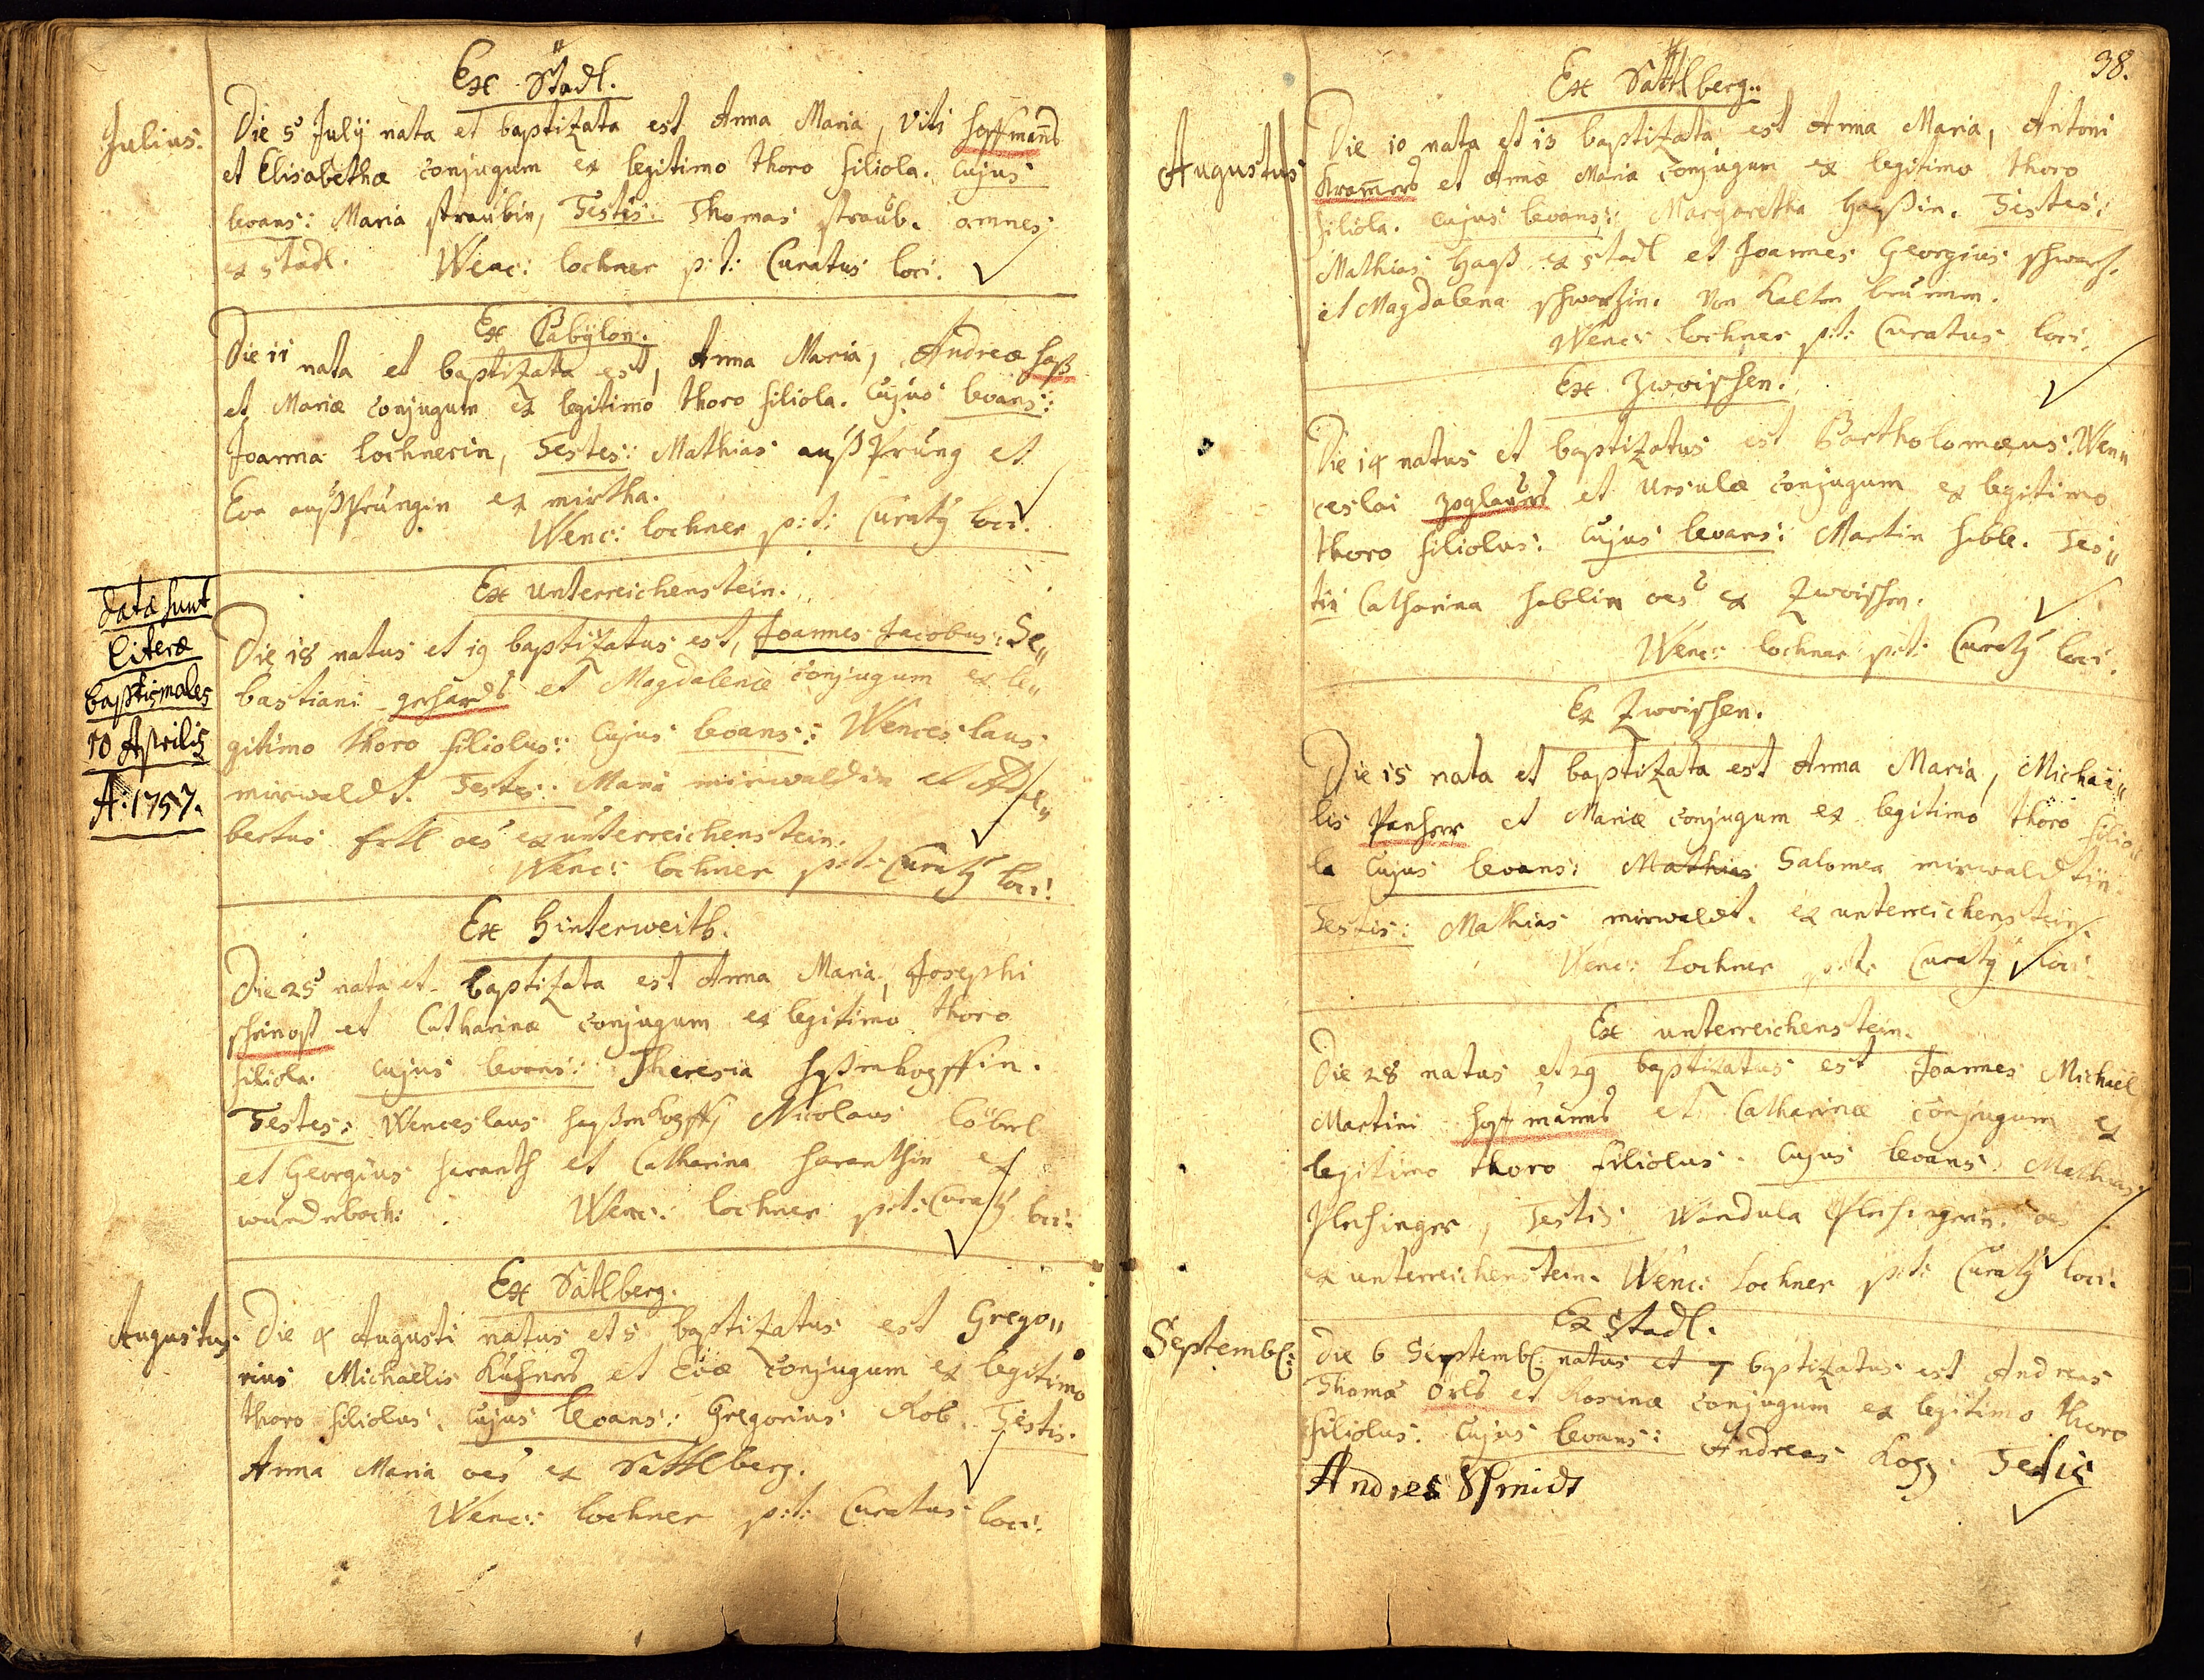 Ex Stadl.
Julius.
Die 5 Julÿ nata et baptizata est Anna Maria, Viti Hoffmans
et Elisabethæ conjugum ex legitimo thoro filiola. Cujus
levans: Maria straubin, Testis: Thomas straub. omnes
ex stadl. Wenc: lochner p:t: Curatus loci.
Ex Babÿlon.
Die 11 nata et baptizata est, Anna Maria, Andreæ haß
et Mariæ conjugum ex legitimo thoro filiola. Cujus levans:
Joanna lochnerin, Testes: Mathias außsprung et
Eva außsprungin ex mirtha.
Wenc: lochner p:t: Curatq loci.
Ex unterreichenstein.
datæ sunt
literæ
baptismales
10 Aprilis
A: 1757.
Die 18 natus et 19 baptizatus est, Joannes Jacobus: Se„
bastiani gerhards et Magdalenæ conjugum ex le„
gitimo thoro filiolus: Cujus levans: Wenceslaus
mirwaldt. Testes: Maria mirwaldin et Adal„
bertus ertl oes ex unterreichenstein.
Wenc: lochner p:t: Curatq loci.
Ex Hinterweith.
Die 25 nata et baptizata est Anna Maria, Josephi
et Catharinæ conjugum ex legitimo thoro
filiola. cujus levans: Theresia
Testes: Wenceslaus Nicolaus löberl
et Georgius haranth et Catharina haranthin ex
Wenc: lochner p:t: Curatq loci.
Ex Satlberg.
Augustus.
Die 4 Augusti natus et 5 baptizatus est Grego„
rius Michaëlis et Evæ conjugum ex legitimo
thoro filiolus. Cujus levans: Gregorius Kob. Testis.
Anna Maria oes ex Sattlberg.
Wenc: lochner p:t: Curatus loci.
38.
Ex Sattlberg.
Augustus
Die 10 nata et 13 baptizata est Anna Maria, Antoni
Kramers et Annæ Mariæ conjugum ex legitimo thoro
filiola. cujus levans: Margaretha Hayßin. Testes:
Mathias Hayß ex stadl et Joannes Georgius
et Magdalena Von Kalten brunnen.
Wenc: lochner p:t: Curatus loci.
Ex Zwoischen.
Die 14 natus et baptizatus est Bartholomæus: Wen„
ceslai zoglauers et Ursulæ conjugum ex legitimo
thoro filiolus: Cujus levans: Martin hable. Tes„
tis Catharina hablin oes ex Zwoischen.
Wenc: lochner p:t: Curatq loci.
Ex Zwoischen.
Die 15 nata et baptizata est Anna Maria, Michaë„
lis Panherr et Mariæ conjugum ex legitimo thoro filio„
la Cujus levans: Mathias Salomea mirwaldtin.
Testis: Mathias mirwaldt. ex unterreichenstein.
Wenc: Lochner p:t: Curatq loci.
Ex unterreichenstein.
Die 28 natus et 29 baptizatus est Joannes Michaël
Martini hoffmanns et Catharinæ conjugum ex
legitimo thoro filiolus. Cujus levans: Mathias
Plehinger, Testis Wandula Plehingerin. oes
ex unterreichenstein. Wenc: Lochner p:t: Curatq loci.
Ex stadl.
Septemb:
Die 6 Septemb: natus et 7 baptizatus est Andreas
Thomæ örls et Rosinæ conjugum ex legitimo thoro
filiolus. Cujus levans: Andreas Testis
Andres Schmidt